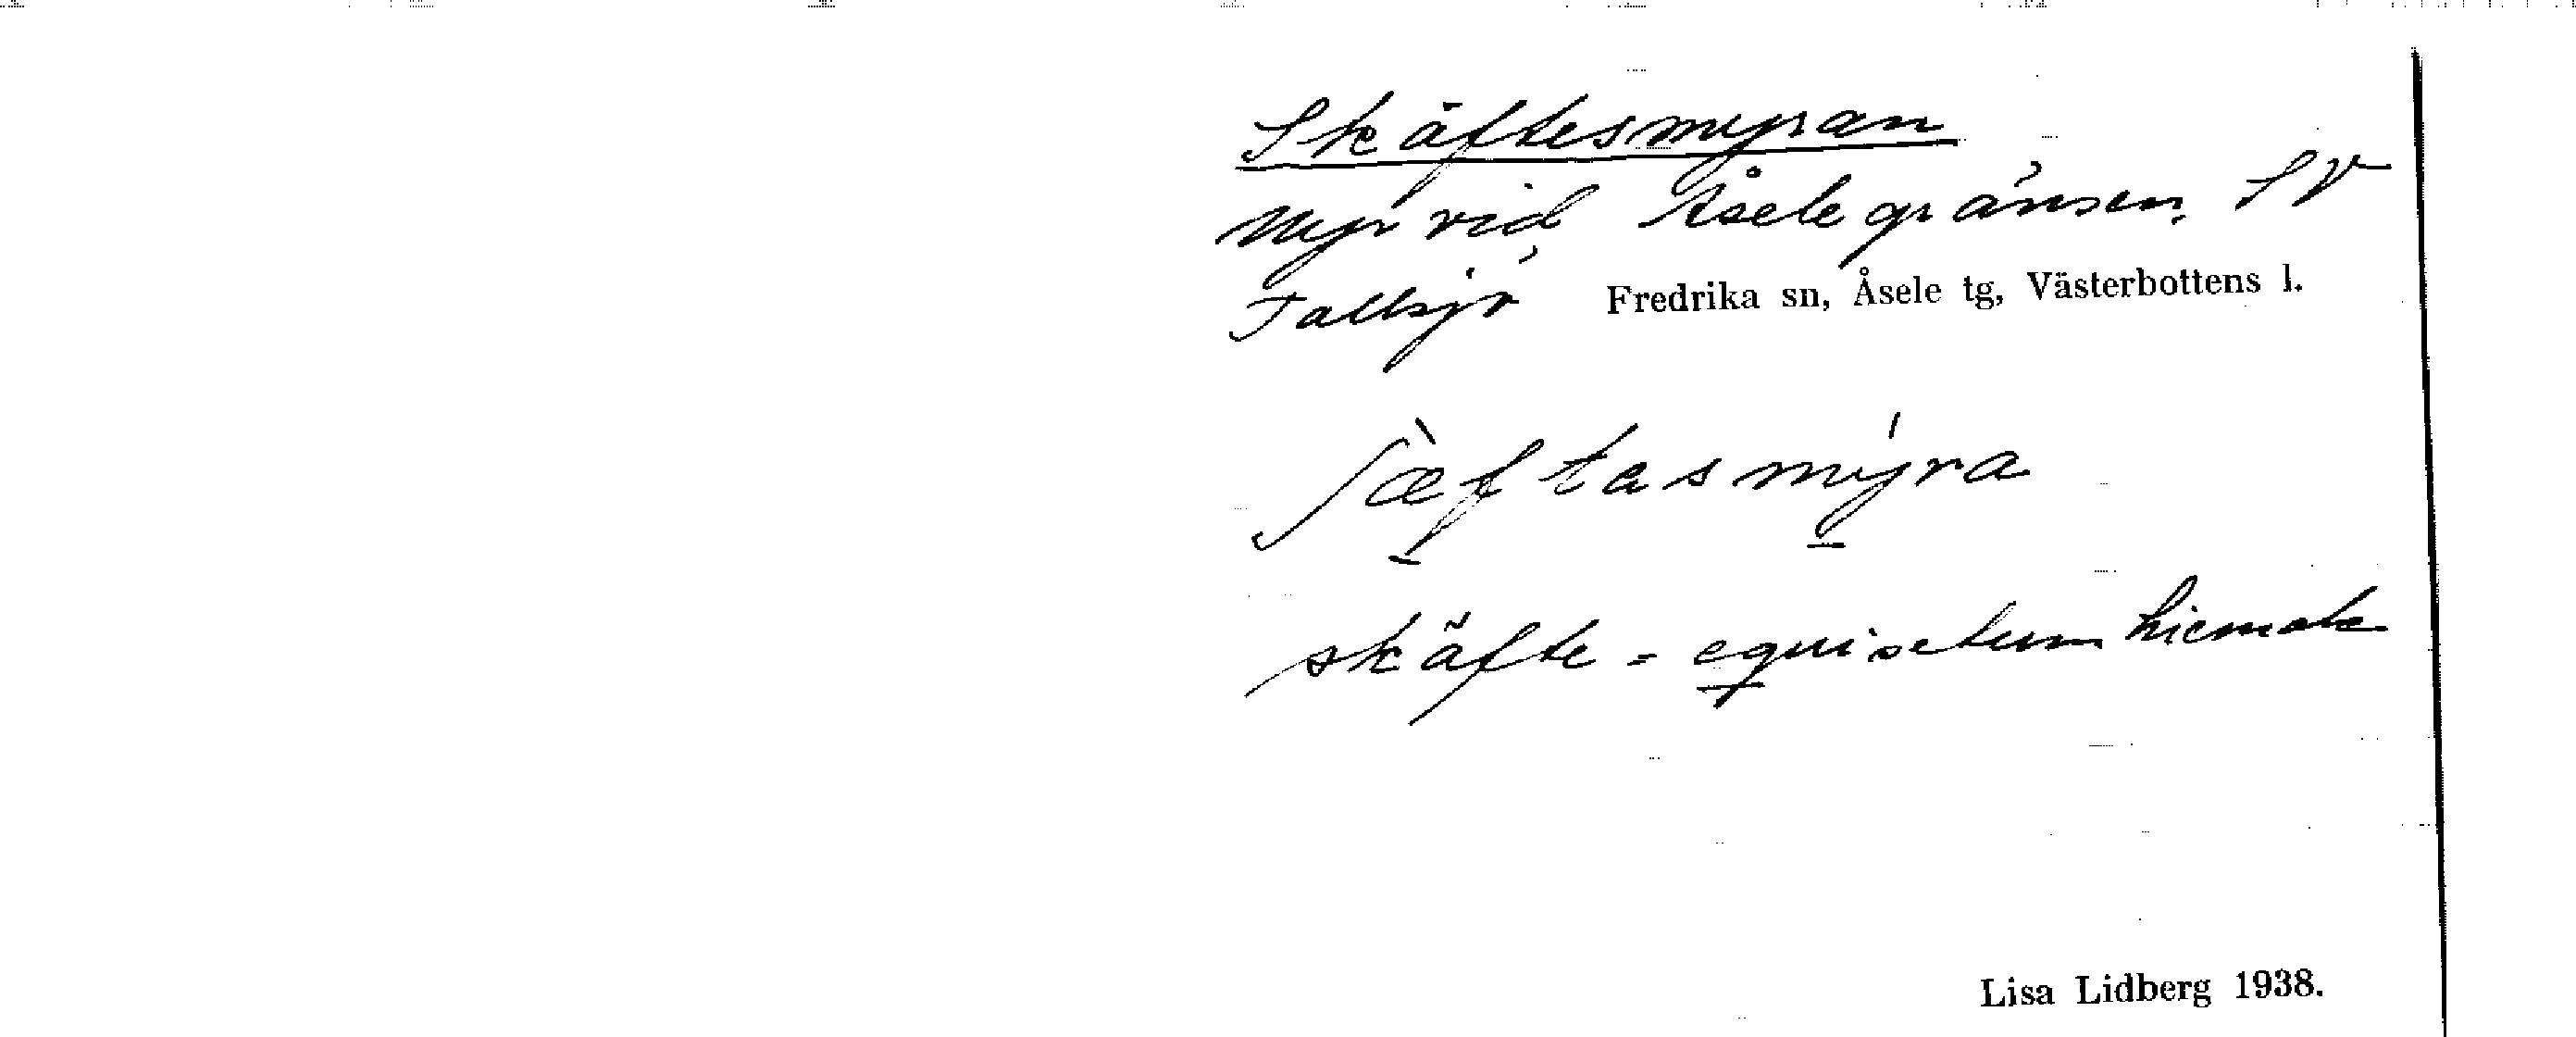 Skäftesmyran
Myr vid Åselegränsen SV
Tallsjö Fredrika sn, Åsele tg, Västerbottens l.
ʃæ̀f̲tasmý̲ra
skäfte = equisetum hiemale
Lisa Lidberg 1938.